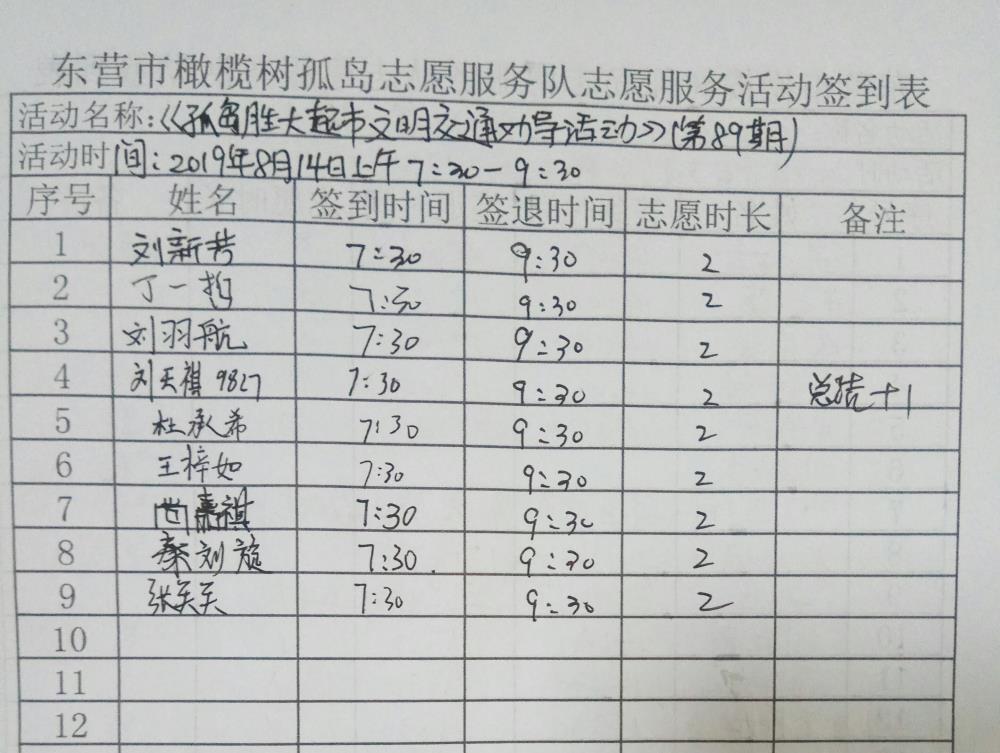 东营市橄榄树孤岛志愿服务队志愿服务活动签到表
活动名称:《孤岛胜大超市文明交通劝导活动》(第89期)
活动时间:2019年8月14日上午 7:30-9:30
序号 姓名 签到时间 签退时间 志愿时长 备注
1 刘新芳 7:30 9:30 2
2 丁一哲 7:30 9:30 2
3 刘羽航 7:30 9:30 2
4 刘天祺 9827 7:30 9:30 2 总结+1
5 杜承希 7:30 9:30 2
6 王梓如 7:30 9:30 2
7 嘉祺 7:30 9:30 2
8 秦刘旋 7:30 9:30 2
9 张天天 7:30 9:30 2
10
11
12